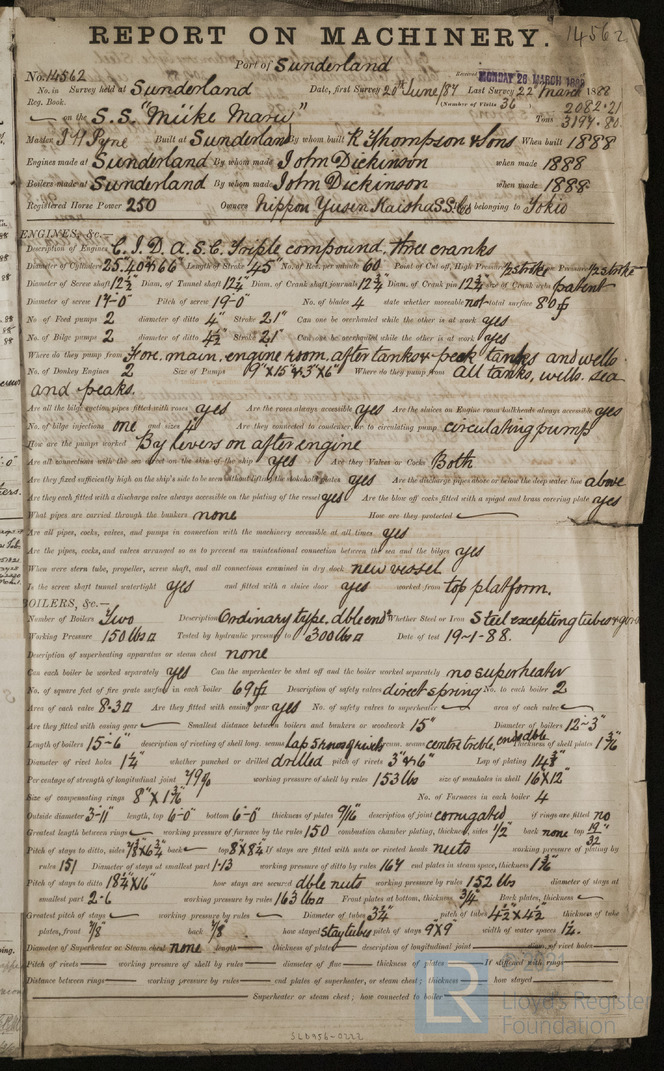 REPORT ON MACHINERY. 14562
Port of Sunderland
No. 14562 Received MONDAY 26 MARCH 1888
No. in Survey held at Sunderland Date, first Survey 20th June/87 Last Survey 22nd March 1888
Reg. Book. (Number of Visits 36 2082.21
on the S.S. "Miike Maru" Tons 3197.80
Master J H Pyne Built at Sunderland By whom built R. Thompson & Sons When built 1888
Engines made at Sunderland By whom made John Dickinson when made 1888
Boilers made at Sunderland By whom made John Dickinson when made 1888
Registered Horse Power 250 Owners Nippon Yusen Kaisha S.S. Co belonging to Tokio
ENGINES, &c.—
Description of Engines C.I.D.A.S.C. Triple compound, three cranks
Diameter of Cylinders 25".40".66" Length of Stroke 45" No. of Rev. per minute 60 Point of Cut off, High Pressure Pressure
Diameter of Screw shaft 12¾" Diam. of Tunnel shaft 12¼" Diam. of Crank shaft journals 12¾" Diam. of Crank pin 12¾" size of Crank webs patent
Diameter of screw 17-0" Pitch of screw 19-0" No. of blades 4 state whether moveable not total surface 80 f
No. of Feed pumps 2 diameter of ditto 4" Stroke 21" Can one be overhauled while the other is at work yes
No. of Bilge pumps 2 diameter of ditto 4½" Stroke 21" Can one be overhauled while the other is at work yes
Where do they pump from Fore, main, engine room, after tanks & peak tanks and wells.
No. of Donkey Engines 2 Size of Pumps 9"x15" & 3"x6" Where do they pump from all tanks, wells. sea
and peaks.
Are all the bilge suction pipes fitted with roses yes Are the roses always accessible yes Are the sluices on Engine room bulkheads always accessible yes
No. of bilge injections one and sizes 4" Are they connected to condenser, or to circulating pump circulating pump
How are the pumps worked By levers on after engine
Are all connections with the sea direct on the skin of the ship yes Are they Valves or Cocks Both
Are they fixed sufficiently high on the ship's side to be seen without lifting the stokehold plates yes Are the discharge pipes above or below the deep water line above
Are they each fitted with a discharge valve always accessible on the plating of the vessel yes Are the blow off cocks fitted with a spigot and brass covering plate yes
What pipes are carried through the bunkers none How are they protected
Are all pipes, cocks, valves, and pumps in connection with the machinery accessible at all times yes
Are the pipes, cocks, and valves arranged so as to prevent an unintentional connection between the sea and the bilges yes
When were stern tube, propeller, screw shaft, and all connections examined in dry dock new vessel
Is the screw shaft tunnel watertight yes and fitted with a sluice door yes worked from top platform.
BOILERS, &c.—
Number of Boilers Two Description Ordinary type, dble end Whether Steel or Iron Steel excepting tubes
Working Pressure 150 lbs Tested by hydraulic pressure to 300 lbs Date of test 19-1-88.
Description of superheating apparatus or steam chest none
Can each boiler be worked separately yes Can the superheater be shut off and the boiler worked separately no superheater
No. of square feet of fire grate surface in each boiler 69 f Description of safety valves direct spring No. to each boiler 2
Area of each valve 8.3 Are they fitted with easing gear yes No. of safety valves to superheater area of each valve
Are they fitted with easing gear Smallest distance between boilers and bunkers or woodwork 15" Diameter of boilers 12-3"
Length of boilers 15-6" description of riveting of shell long. seams circum. seams centre treble, ends dble Thickness of shell plates 1 3/16"
Diameter of rivet holes 1¼" whether punched or drilled drilled pitch of rivets Lap of plating
Per centage of strength of longitudinal joint 79% working pressure of shell by rules 153 lb size of manholes in shell 16x12"
Size of compensating rings 8"x1 3/16" No. of Furnaces in each boiler 4
Outside diameter 3-11" length, top 6-0" bottom 6-0" thickness of plates 9/16" description of joint corrugated if rings are fitted no
Greatest length between rings working pressure of furnace by the rules 150 combustion chamber plating, thickness, sides ½" back none top 19/32"
Pitch of stays to ditto, sides back top 8"x8¼" If stays are fitted with nuts or riveted heads nuts working pressure of plating by
rules 151 Diameter of stays at smallest part 1.13 working pressure of ditto by rules 164 end plates in steam space, thickness
Pitch of stays to ditto 18¼"x16" how stays are secured dble nuts working pressure by rules 152 lbs diameter of stays at
smallest part 2.6 working pressure by rules 163 lbs Front plates at bottom, thickness ¾" Back plates, thickness
Greatest pitch of stays working pressure by rules Diameter of tubes 3¼" pitch of tubes 4½"x4½" thickness of tube
plates, front 7/8" back 7/8" how stayed stay tubes pitch of stays 9"x9" width of water spaces 1¼.
Diameter of Superheater or Steam chest none length thickness of plates description of longitudinal joint diam. of rivet holes
Pitch of rivets working pressure of shell by rules diameter of flue thickness of plates If stiffened with rings
Distance between rings working pressure by rules end plates of superheater, or steam chest; thickness how stayed
Superheater or steam chest; how connected to boiler
© 2021
LR Lloyd's Register
Foundation
SLD956-0222